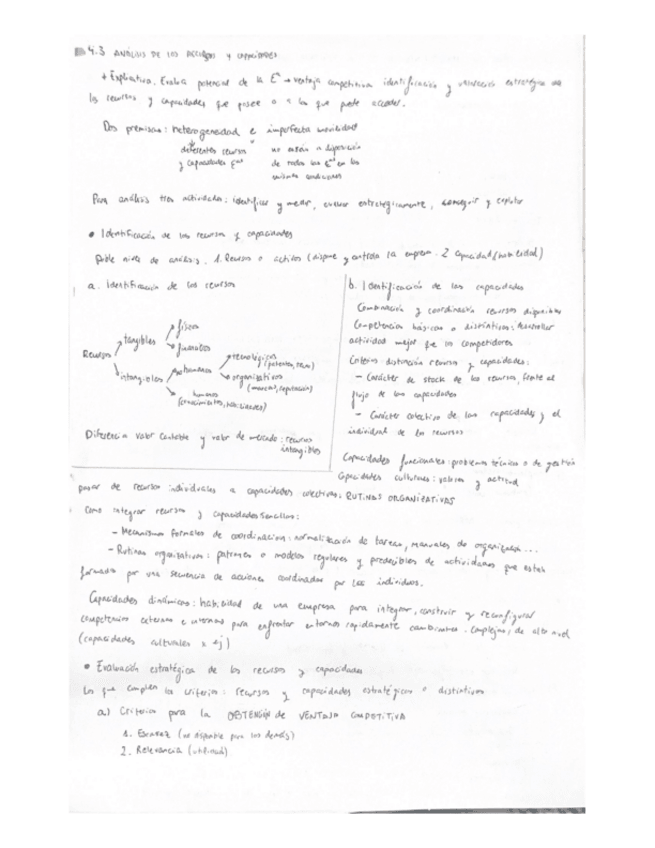 4.3 ANÁLISIS DE LOS RECURSOS y CAPACIDADES
+ Explicativa. Evalúa potencial de la Eª → ventaja competitiva identificación y valoración estratégica de
los recursos y capacidades que posee o a los que puede acceder.
Dos premisas: heterogeneidad e imperfecta movilidad
diferentes recursos
y capacidades Eªs
no están a disposición
de todas las Eªs en las
mismas condiciones
Para análisis tres actividades: identificar y medir, evaluar estratégicamente, conseguir y explotar
• Identificación de los recursos y capacidades
Doble nivel de análisis. 1. Recursos o activos (dispone y controla la empresa. 2 Capacidad (habilidad)
a. Identificación de los recursos
Recursos
tangibles
físicos
financieros
intangibles
no humanos
tecnológicos
(patentes,
organizativos
(marcas, reputación)
humanos
(conocimientos, habilidades)
Diferencia valor contable y valor de mercado: recursos
intangibles
b. Identificación de las capacidades
Combinación y coordinación recursos disponibles
Competencias básicas o distintivas: desarrollar
actividad mejor que los competidores
Criterios distinción recursos y capacidades:
– Carácter de stock de los recursos, frente al
flujo de las capacidades
– Carácter colectivo de las capacidades y el
individual de los recursos
Capacidades funcionales: problemas técnicos o de gestión
Capacidades culturales: valores y actitud
pasar de recursos individuales a capacidades colectivas: RUTINAS ORGANIZATIVAS
Como integrar recursos y capacidades sencillos:
– Mecanismos formales de coordinación: normalización de tareas, manuales de organización...
– Rutinas organizativas: patrones o modelos regulares y predecibles de actividades que están
formados por una secuencia de acciones coordinadas por los individuos.
Capacidades dinámicas: habilidad de una empresa para integrar, construir y reconfigurar
competencias externas e internas para enfrentar entornos rápidamente cambiantes. Complejas, de alto nivel
(capacidades culturales x ej)
• Evaluación estratégica de los recursos y capacidades
Los que cumplen los criterios: recursos y capacidades estratégicos o distintivos
a) Criterios para la OBTENCIÓN DE VENTAJA COMPETITIVA
1. Escasez (no disponible para los demás)
2. Relevancia (utilidad)